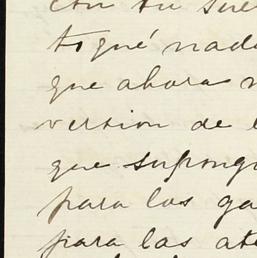 con tu sue
toqué nada
que ahora n
version de l
que supongo
para los ga
para las ate